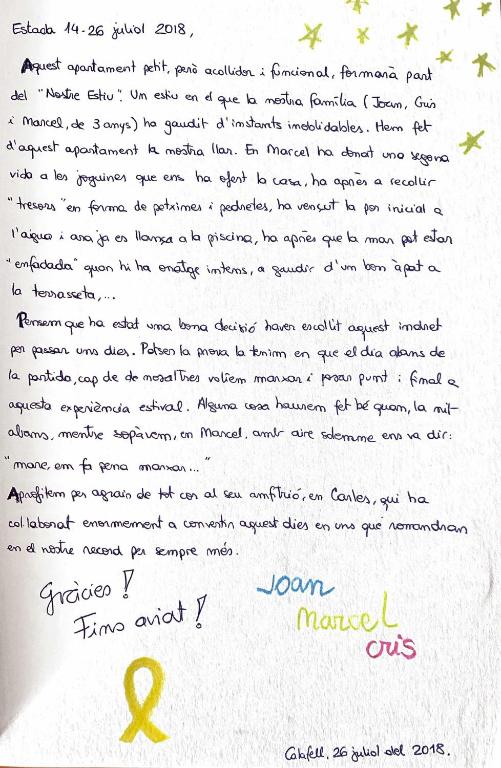 Estada 14-26 juliol 2018,
Aquest apartament petit, però acollidor i funcional, formarà part
del "Nostre Estiu". Un estiu en el que la nostra família (Joan, Cris
i Marcel, de 3 anys) ha gaudit d'instants inoblidables. Hem fet
d'aquest apartament la nostra llar. En Marcel ha donat una segona
vida a les joguines que ens ha ofert la casa, ha après a recollir
"tresors" en forma de petxines i pedretes, ha vençut la por inicial a
l'aigua i ara ja es llança a la piscina, ha après que la mar pot estar
"enfadada" quan hi ha onatge intens, a gaudir d'un bon àpat a
la terrasseta,...
Pensem que ha estat una bona decisió haver escollit aquest indret
per passar uns dies. Potser la prova la tenim en que el dia abans de
la partida, cap de de nosaltres volíem marxar i posar punt i final a
aquesta experiència estival. Alguna cosa haurem fet bé quan, la nit-
abans, mentre sopàvem, en Marcel, amb aire solemne ens va dir:
"mare, em fa pena marxar..."
Aprofitem per agrair de tot cor al seu amfitrió, en Carles, qui ha
col·laborat enormement a convertir aquest dies en uns que romandran
en el nostre record per sempre més.
Gràcies!
Fins aviat!
Joan
Marcel
Cris
Calafell, 26 juliol del 2018.